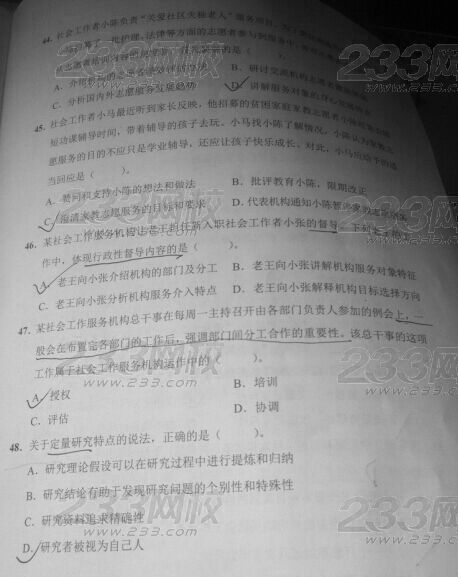 44. 社会工作者小陈负责“关爱社区失独老人”服务项目，为了
招募了一批护理、法律等方面的志愿者参与到服务中，
志愿者培训内容的
A. 介绍机构的志愿者
B. 研讨交流机构志愿者
C. 分析国内外志愿服务发展趋势
D. 讲解服务对象的身心发展特点
45. 社会工作者小马最近听到家长反映，他招募的贫困家庭家教志愿者小陈时常
短功课辅导时间，带着辅导的孩子去玩。小马找小陈了解情况，小陈认为家教志
愿服务的目的不应只是学业辅导，还应让孩子快乐成长。对此，小马应给予的适
当回应是（ ）。
A. 赞同和支持小陈的想法和做法
B. 批评教育小陈，限期改正
C. 澄清家教志愿服务的目标和要求
D. 代表机构通知小陈暂停家教志愿服务
46. 某社会工作服务机构让老王担任新入职社会工作者小张的督导，下列老王的
作中，体现行政性督导内容的是（ ）。
A. 老王向小张介绍机构的部门及分工
B. 老王向小张讲解机构服务对象特征
C. 老王向小张分析机构服务介入特点
D. 老王向小张解释机构目标选择方向
47. 某社会工作服务机构总干事在每周一主持召开由各部门负责人参加的例会上，一
般会在布置完各部门的工作后，强调部门间分工合作的重要性。该总干事的这项
工作属于社会工作服务机构运作中的（ ）。
A. 授权
B. 培训
C. 评估
D. 协调
48. 关于定量研究特点的说法，正确的是（ ）。
A. 研究理论假设可以在研究过程中进行提炼和归纳
B. 研究结论有助于发现研究问题的个别性和特殊性
C. 研究资料追求精确性
D. 研究者被视为自己人
233网校
www.233.com